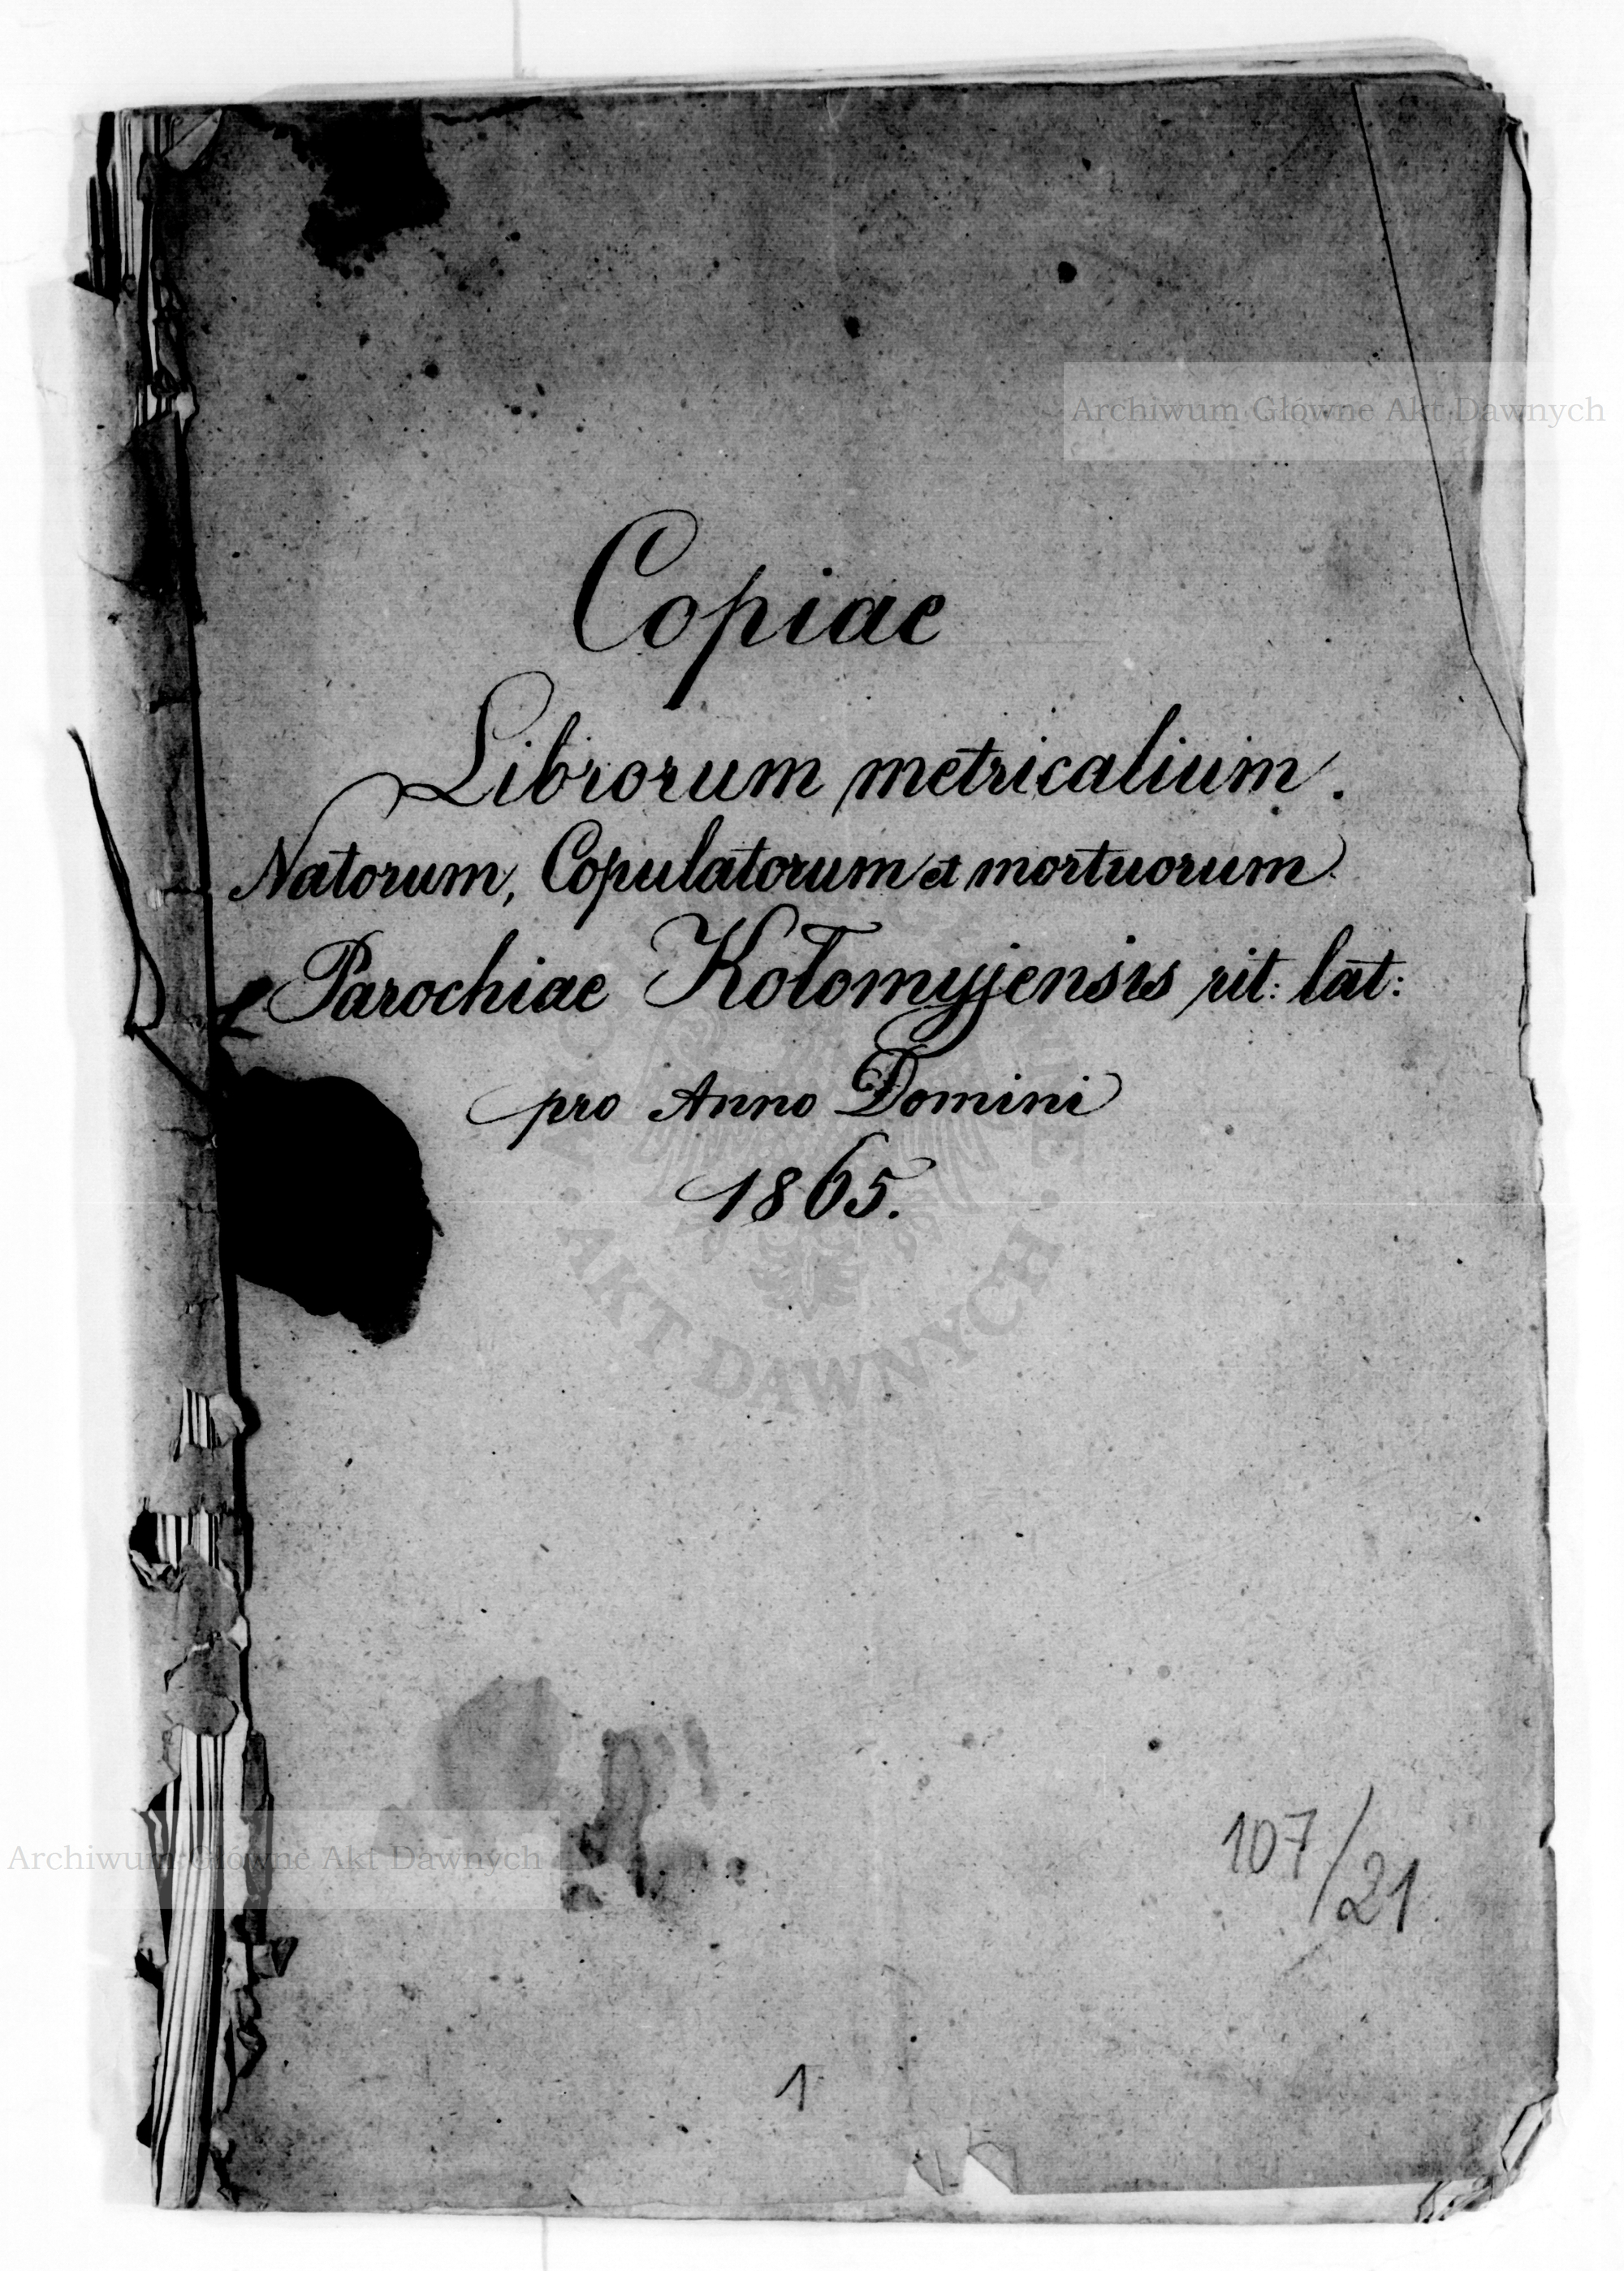 Archiwum Główne Akt Dawnych
Copiae
Librorum metricalium.
Natorum, Copulatorum et mortuorum
Parochiae Kołomyjensis rit: lat:
pro Anno Domini
1865.
AKT DAWNYCH
Archiwum Główne Akt Dawnych
107/21
1